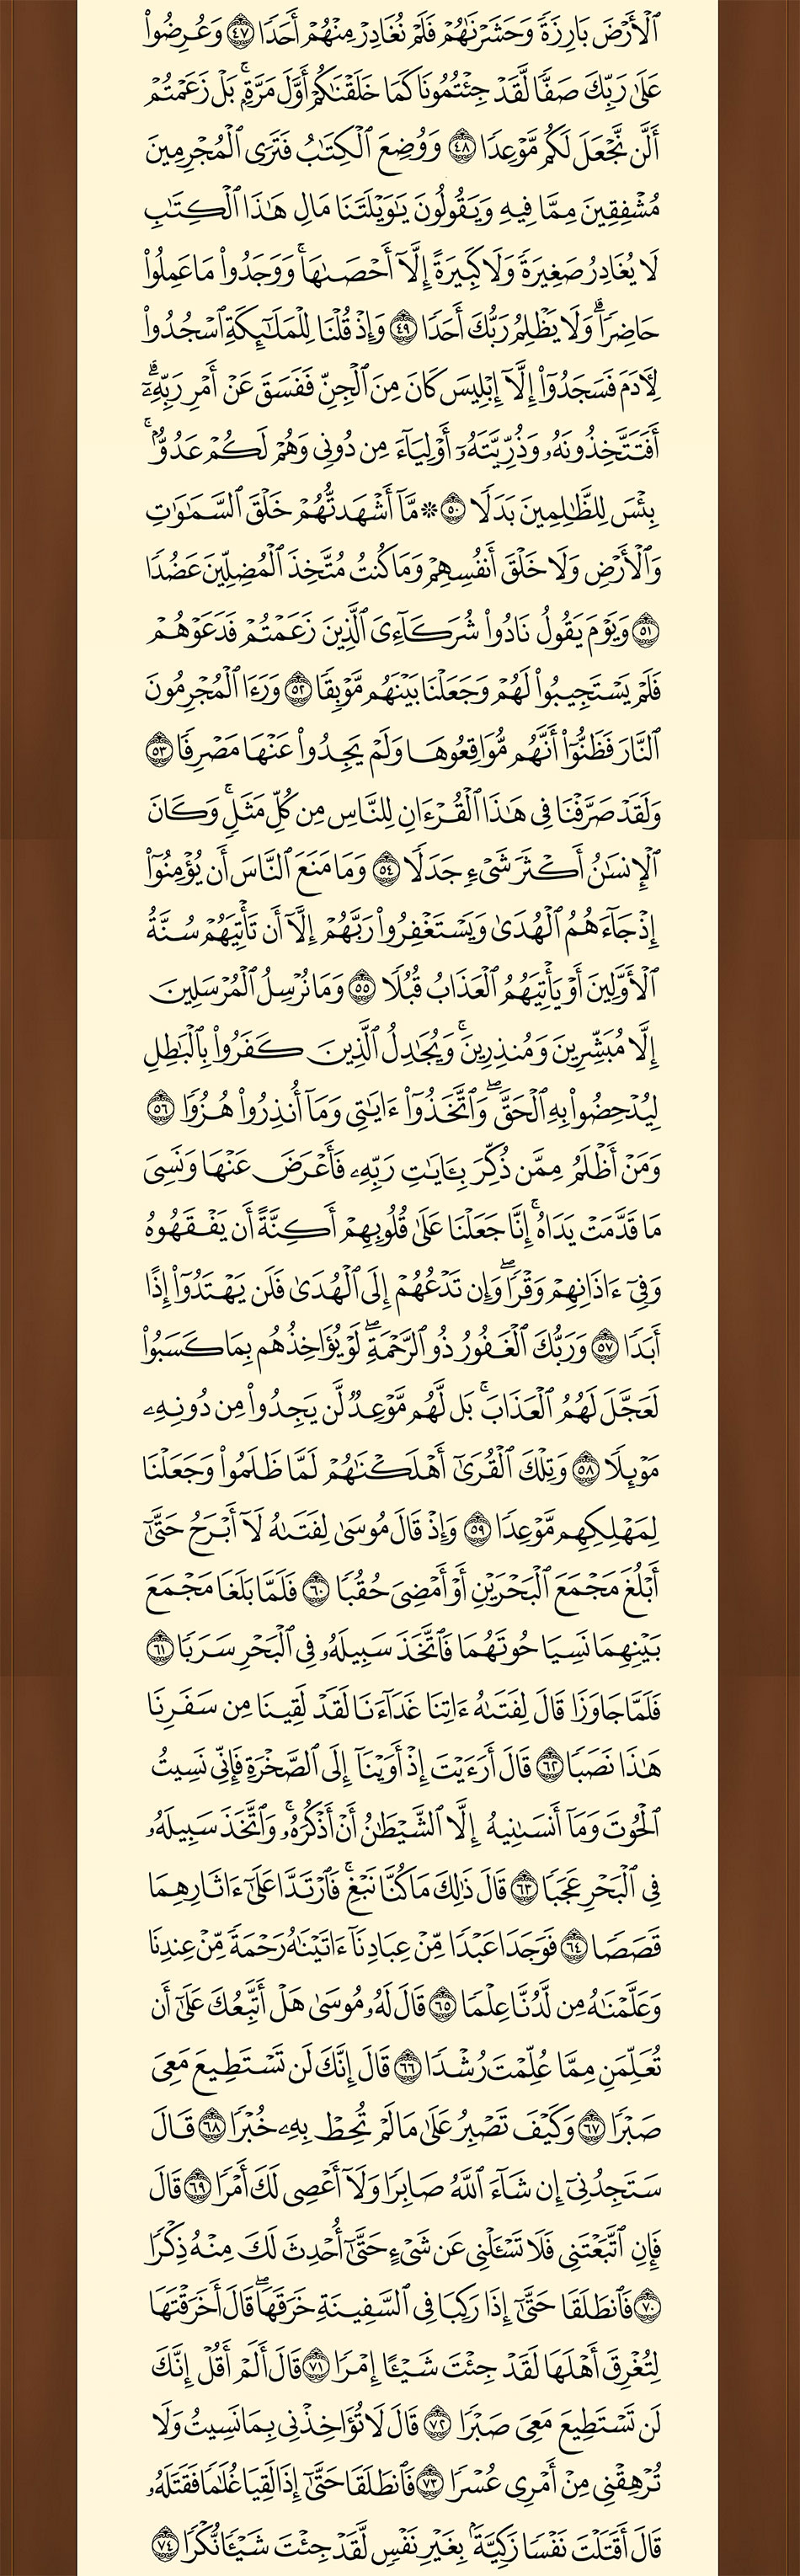 ٱلْأَرْضَ بَارِزَةً وَحَشَرْنَٰهُمْ فَلَمْ نُغَادِرْ مِنْهُمْ أَحَدًا ٤٧ وَعُرِضُوا۟
عَلَىٰ رَبِّكَ صَفًّا لَّقَدْ جِئْتُمُونَا كَمَا خَلَقْنَٰكُمْ أَوَّلَ مَرَّةٍۭ ۚ بَلْ زَعَمْتُمْ
أَلَّن نَّجْعَلَ لَكُم مَّوْعِدًا ٤٨ وَوُضِعَ ٱلْكِتَٰبُ فَتَرَى ٱلْمُجْرِمِينَ
مُشْفِقِينَ مِمَّا فِيهِ وَيَقُولُونَ يَٰوَيْلَتَنَا مَالِ هَٰذَا ٱلْكِتَٰبِ
لَا يُغَادِرُ صَغِيرَةً وَلَا كَبِيرَةً إِلَّآ أَحْصَىٰهَا ۚ وَوَجَدُوا۟ مَا عَمِلُوا۟
حَاضِرًا ۗ وَلَا يَظْلِمُ رَبُّكَ أَحَدًا ٤٩ وَإِذْ قُلْنَا لِلْمَلَٰٓئِكَةِ ٱسْجُدُوا۟
لِـَٔادَمَ فَسَجَدُوٓا۟ إِلَّآ إِبْلِيسَ كَانَ مِنَ ٱلْجِنِّ فَفَسَقَ عَنْ أَمْرِ رَبِّهِۦٓ ۗ
أَفَتَتَّخِذُونَهُۥ وَذُرِّيَّتَهُۥٓ أَوْلِيَآءَ مِن دُونِى وَهُمْ لَكُمْ عَدُوٌّۢ ۚ
بِئْسَ لِلظَّٰلِمِينَ بَدَلًا ٥٠ ۞ مَّآ أَشْهَدتُّهُمْ خَلْقَ ٱلسَّمَٰوَٰتِ
وَٱلْأَرْضِ وَلَا خَلْقَ أَنفُسِهِمْ وَمَا كُنتُ مُتَّخِذَ ٱلْمُضِلِّينَ عَضُدًا
٥١ وَيَوْمَ يَقُولُ نَادُوا۟ شُرَكَآءِىَ ٱلَّذِينَ زَعَمْتُمْ فَدَعَوْهُمْ
فَلَمْ يَسْتَجِيبُوا۟ لَهُمْ وَجَعَلْنَا بَيْنَهُم مَّوْبِقًا ٥٢ وَرَءَا ٱلْمُجْرِمُونَ
ٱلنَّارَ فَظَنُّوٓا۟ أَنَّهُم مُّوَاقِعُوهَا وَلَمْ يَجِدُوا۟ عَنْهَا مَصْرِفًا ٥٣
وَلَقَدْ صَرَّفْنَا فِى هَٰذَا ٱلْقُرْءَانِ لِلنَّاسِ مِن كُلِّ مَثَلٍ ۚ وَكَانَ
ٱلْإِنسَٰنُ أَكْثَرَ شَىْءٍ جَدَلًا ٥٤ وَمَا مَنَعَ ٱلنَّاسَ أَن يُؤْمِنُوٓا۟
إِذْ جَآءَهُمُ ٱلْهُدَىٰ وَيَسْتَغْفِرُوا۟ رَبَّهُمْ إِلَّآ أَن تَأْتِيَهُمْ سُنَّةُ
ٱلْأَوَّلِينَ أَوْ يَأْتِيَهُمُ ٱلْعَذَابُ قُبُلًا ٥٥ وَمَا نُرْسِلُ ٱلْمُرْسَلِينَ
إِلَّا مُبَشِّرِينَ وَمُنذِرِينَ ۚ وَيُجَٰدِلُ ٱلَّذِينَ كَفَرُوا۟ بِٱلْبَٰطِلِ
لِيُدْحِضُوا۟ بِهِ ٱلْحَقَّ ۖ وَٱتَّخَذُوٓا۟ ءَايَٰتِى وَمَآ أُنذِرُوا۟ هُزُوًا ٥٦
وَمَنْ أَظْلَمُ مِمَّن ذُكِّرَ بِـَٔايَٰتِ رَبِّهِۦ فَأَعْرَضَ عَنْهَا وَنَسِىَ
مَا قَدَّمَتْ يَدَاهُ ۚ إِنَّا جَعَلْنَا عَلَىٰ قُلُوبِهِمْ أَكِنَّةً أَن يَفْقَهُوهُ
وَفِىٓ ءَاذَانِهِمْ وَقْرًا ۖ وَإِن تَدْعُهُمْ إِلَى ٱلْهُدَىٰ فَلَن يَهْتَدُوٓا۟ إِذًا
أَبَدًا ٥٧ وَرَبُّكَ ٱلْغَفُورُ ذُو ٱلرَّحْمَةِ ۖ لَوْ يُؤَاخِذُهُم بِمَا كَسَبُوا۟
لَعَجَّلَ لَهُمُ ٱلْعَذَابَ ۚ بَل لَّهُم مَّوْعِدٌ لَّن يَجِدُوا۟ مِن دُونِهِۦ
مَوْئِلًا ٥٨ وَتِلْكَ ٱلْقُرَىٰٓ أَهْلَكْنَٰهُمْ لَمَّا ظَلَمُوا۟ وَجَعَلْنَا
لِمَهْلِكِهِم مَّوْعِدًا ٥٩ وَإِذْ قَالَ مُوسَىٰ لِفَتَىٰهُ لَآ أَبْرَحُ حَتَّىٰٓ
أَبْلُغَ مَجْمَعَ ٱلْبَحْرَيْنِ أَوْ أَمْضِىَ حُقُبًا ٦٠ فَلَمَّا بَلَغَا مَجْمَعَ
بَيْنِهِمَا نَسِيَا حُوتَهُمَا فَٱتَّخَذَ سَبِيلَهُۥ فِى ٱلْبَحْرِ سَرَبًا ٦١
فَلَمَّا جَاوَزَا قَالَ لِفَتَىٰهُ ءَاتِنَا غَدَآءَنَا لَقَدْ لَقِينَا مِن سَفَرِنَا
هَٰذَا نَصَبًا ٦٢ قَالَ أَرَءَيْتَ إِذْ أَوَيْنَآ إِلَى ٱلصَّخْرَةِ فَإِنِّى نَسِيتُ
ٱلْحُوتَ وَمَآ أَنسَىٰنِيهُ إِلَّا ٱلشَّيْطَٰنُ أَنْ أَذْكُرَهُۥ ۚ وَٱتَّخَذَ سَبِيلَهُۥ
فِى ٱلْبَحْرِ عَجَبًا ٦٣ قَالَ ذَٰلِكَ مَا كُنَّا نَبْغِ ۚ فَٱرْتَدَّا عَلَىٰٓ ءَاثَارِهِمَا
قَصَصًا ٦٤ فَوَجَدَا عَبْدًا مِّنْ عِبَادِنَآ ءَاتَيْنَٰهُ رَحْمَةً مِّنْ عِندِنَا
وَعَلَّمْنَٰهُ مِن لَّدُنَّا عِلْمًا ٦٥ قَالَ لَهُۥ مُوسَىٰ هَلْ أَتَّبِعُكَ عَلَىٰٓ أَن
تُعَلِّمَنِ مِمَّا عُلِّمْتَ رُشْدًا ٦٦ قَالَ إِنَّكَ لَن تَسْتَطِيعَ مَعِىَ
صَبْرًا ٦٧ وَكَيْفَ تَصْبِرُ عَلَىٰ مَا لَمْ تُحِطْ بِهِۦ خُبْرًا ٦٨ قَالَ
سَتَجِدُنِىٓ إِن شَآءَ ٱللَّهُ صَابِرًا وَلَآ أَعْصِى لَكَ أَمْرًا ٦٩ قَالَ
فَإِنِ ٱتَّبَعْتَنِى فَلَا تَسْـَٔلْنِى عَن شَىْءٍ حَتَّىٰٓ أُحْدِثَ لَكَ مِنْهُ ذِكْرًا
٧٠ فَٱنطَلَقَا حَتَّىٰٓ إِذَا رَكِبَا فِى ٱلسَّفِينَةِ خَرَقَهَا ۖ قَالَ أَخَرَقْتَهَا
لِتُغْرِقَ أَهْلَهَا لَقَدْ جِئْتَ شَيْـًٔا إِمْرًا ٧١ قَالَ أَلَمْ أَقُلْ إِنَّكَ
لَن تَسْتَطِيعَ مَعِىَ صَبْرًا ٧٢ قَالَ لَا تُؤَاخِذْنِى بِمَا نَسِيتُ وَلَا
تُرْهِقْنِى مِنْ أَمْرِى عُسْرًا ٧٣ فَٱنطَلَقَا حَتَّىٰٓ إِذَا لَقِيَا غُلَٰمًا فَقَتَلَهُۥ
قَالَ أَقَتَلْتَ نَفْسًا زَكِيَّةًۢ بِغَيْرِ نَفْسٍ لَّقَدْ جِئْتَ شَيْـًٔا نُّكْرًا ٧٤